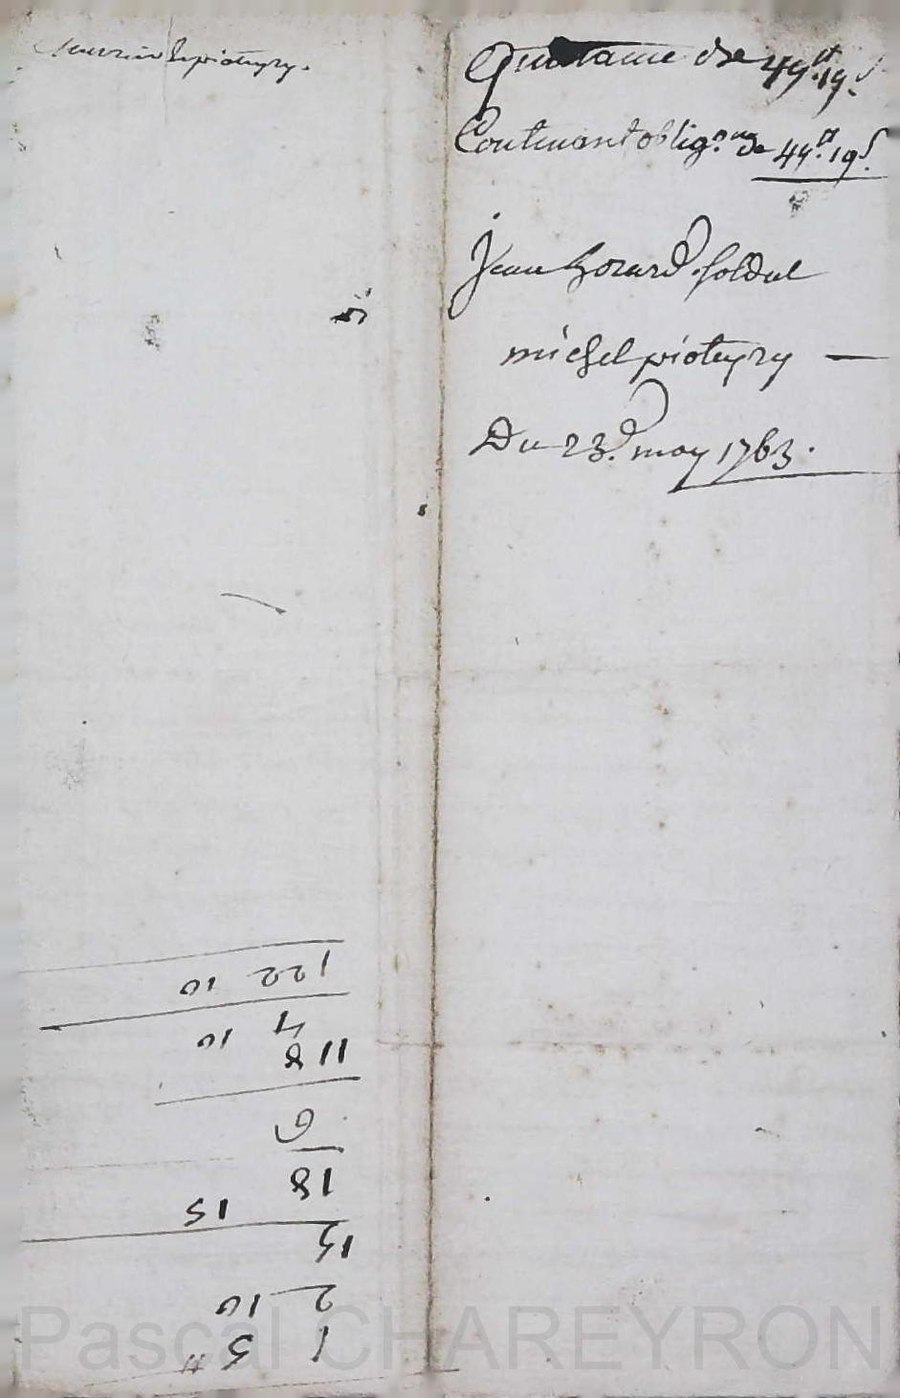 pioteyry.
Quittance de 49# 19s.
Contenant oblig.on de 44# 19s.
Jean soldat
michel pioteyry —
Du 23.e may 1763.
1 5 #
2 10
15
18 15
6
118
4 10
122 10
Pascal CHAREYRON